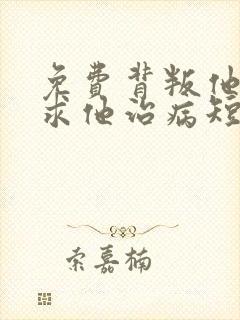 免費背叛他
求他治病短
索嘉楠